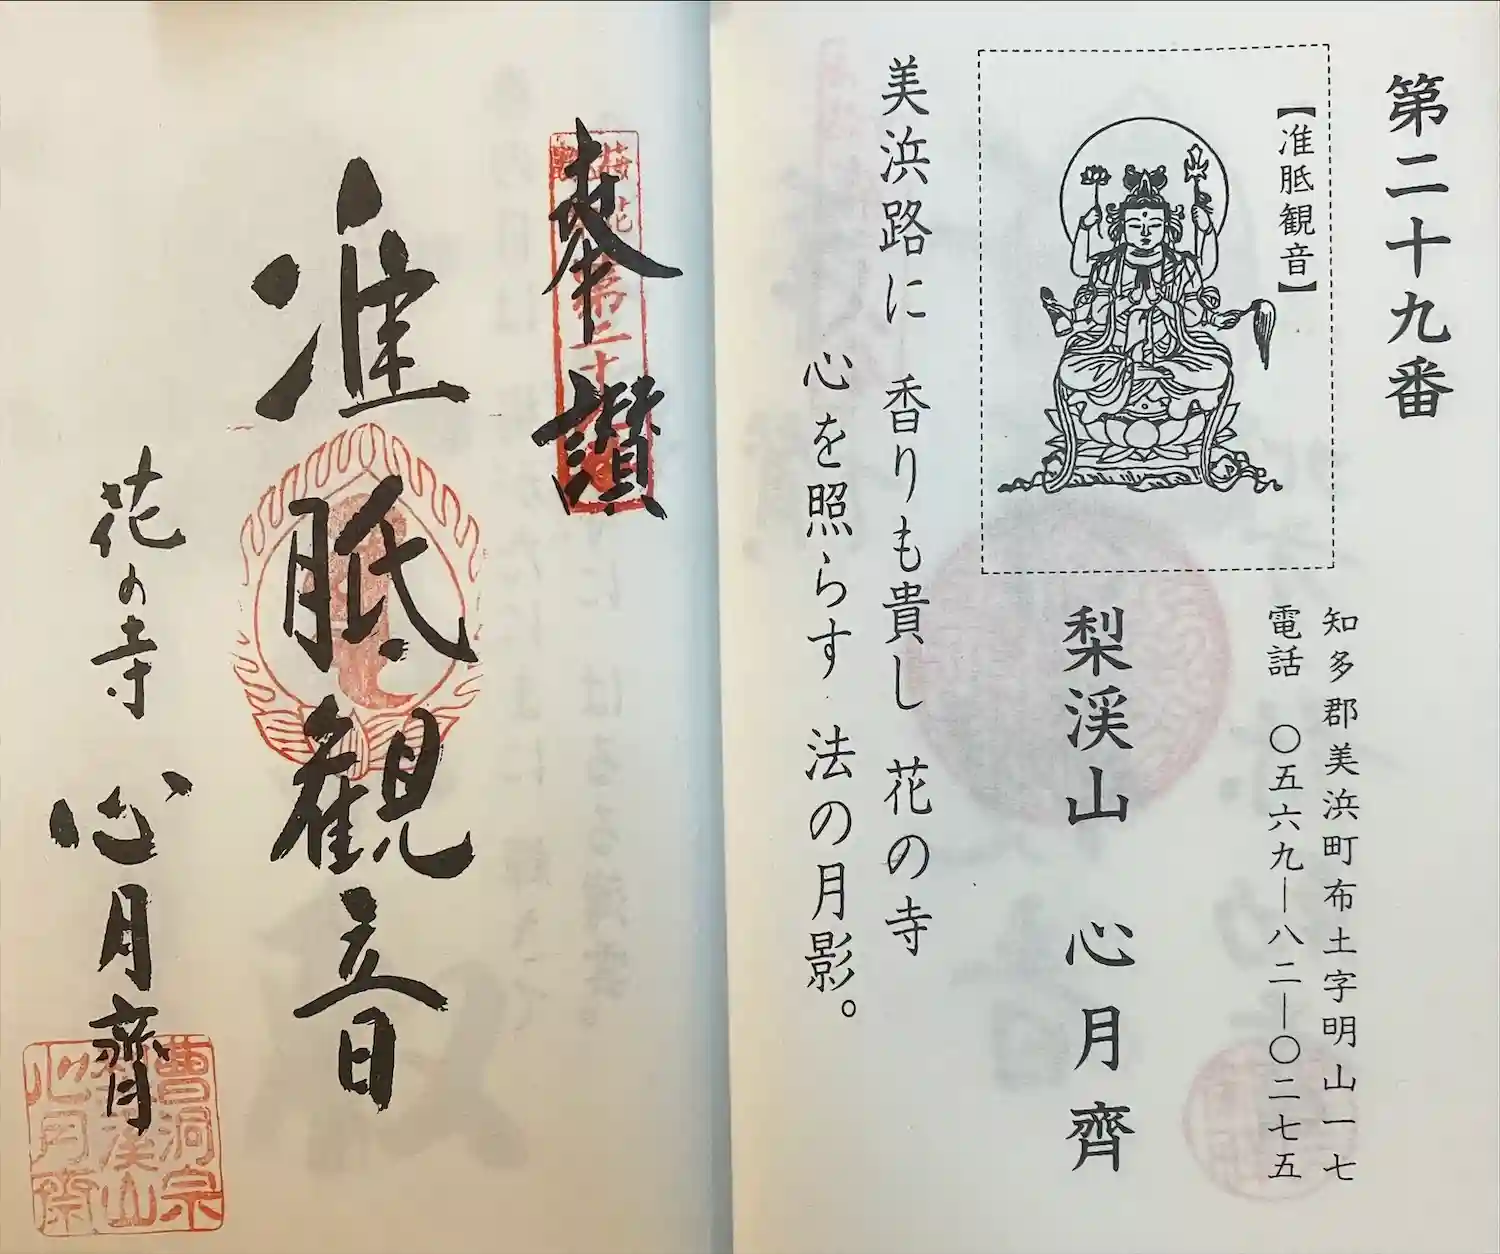 第二十九番
【准胝観音】
知多郡美浜町布土字明山一七
電話 〇五六九―八二―〇二七五
梨渓山 心月齊
美浜路に 香りも貴し 花の寺
心を照らす 法の月影。
奉讃
准胝観音
花の寺 心月齊
曹洞宗